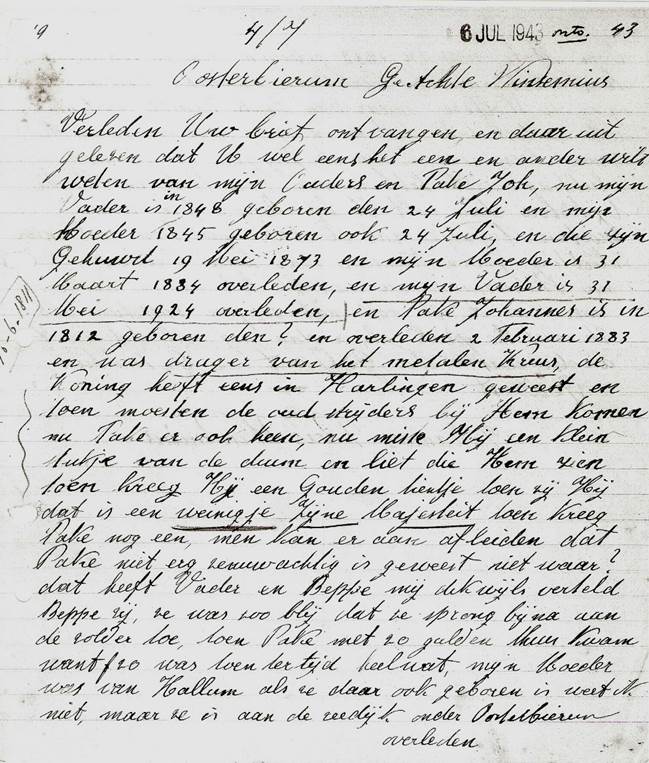 '9 4/7 6 JUL 1943 ontv. 43
Oosterbierum Geachte Wintemius
Verleden Uw brief ontvangen, en daar uit
gelezen dat U wel eens het een en ander wilt
weten van mijn Ouders en Pake Joh, nu mijn
Vader is in 1848 geboren den 24 Juli en mijn
Moeder 1845 geboren ook 24 Juli, en die zijn
Gehuwd 19 Mei 1873 en mijn Moeder is 31
Maart 1884 overleden, en mijn Vader is 31
Mei 1924 overleden, en Pake Johannes is in
1812 geboren den? en overleden 2 Februari 1883
en was drager van het metalen Kruis, de
Koning heeft eens in Harlingen geweest en
toen moesten de oud strijders bij Hem komen
nu Pake er ook heen, nu miste Hij een klein
stukje van de duim en liet die Hem zien
toen kreeg Hij een Gouden tientje toen zij Hij
dat is een weinigje Zijne Majesteit toen kreeg
Pake nog een, men kan er aan afleiden dat
Pake niet erg zenuwachtig is geweest niet waar?
dat heeft Vader en Beppe mij dikwijls verteld
Beppe zij, ze was zoo blij dat ze sprong bijna aan
de zolder toe, toen Pake met 20 gulden thuis kwam
want ƒ20 was toen tertijd heel wat, mijn Moeder
was van Hallum als ze daar ook geboren is weet ik
niet, maar ze is aan de zeedijk onder Oosterbierum
overleden